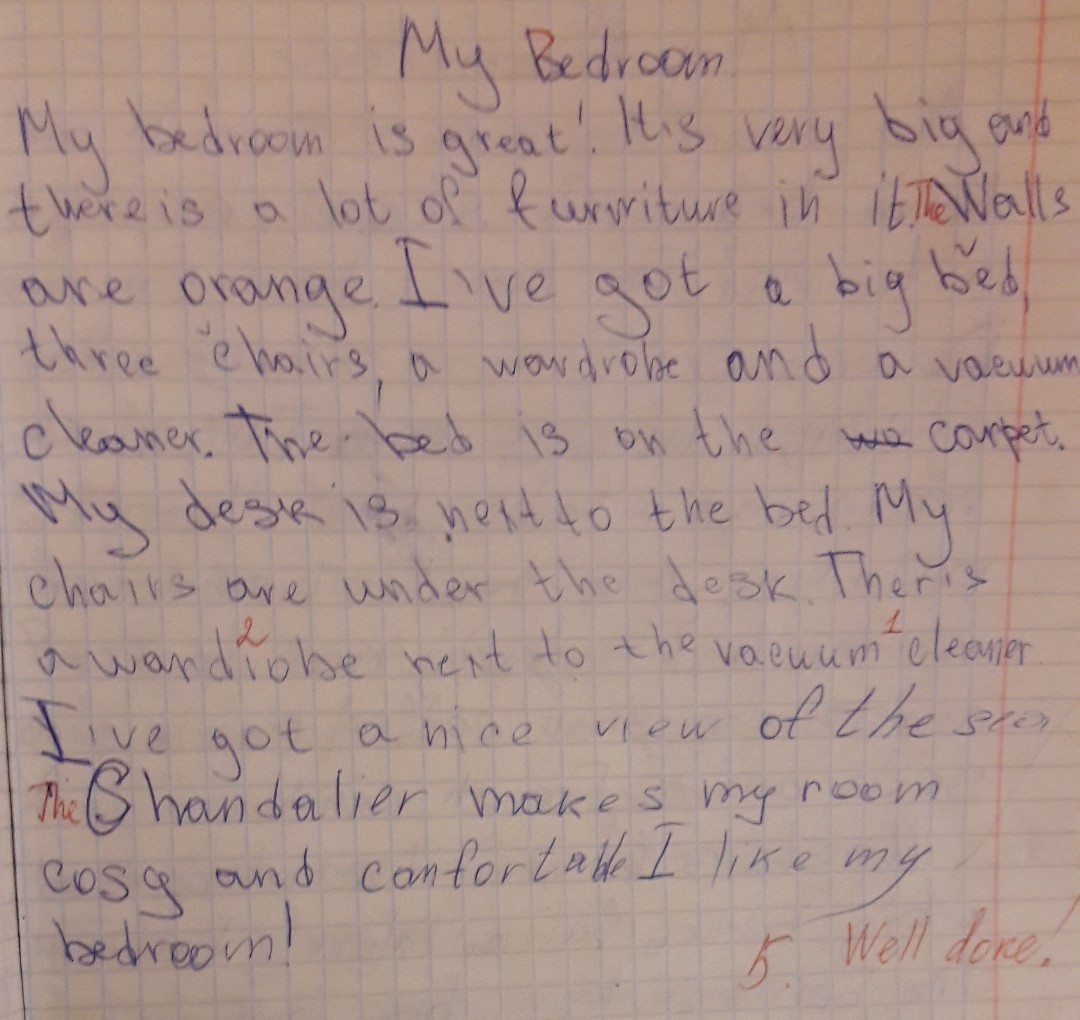 My Bedroom
My bedroom is great! It's very big and
there is a lot of furniture in it. The Walls
are orange. I've got a big bed,
three chairs, a wardrobe and a vacuum
cleaner. The bed is on the wa carpet.
My desk is next to the bed. My
chairs are under the desk. Ther is
a wardiobe 2 next to the vacuum 1 cleaner.
I've got a nice view of the sea
The Shandalier makes my room
cosy and confortable I like my
bedroom!
5. Well done!